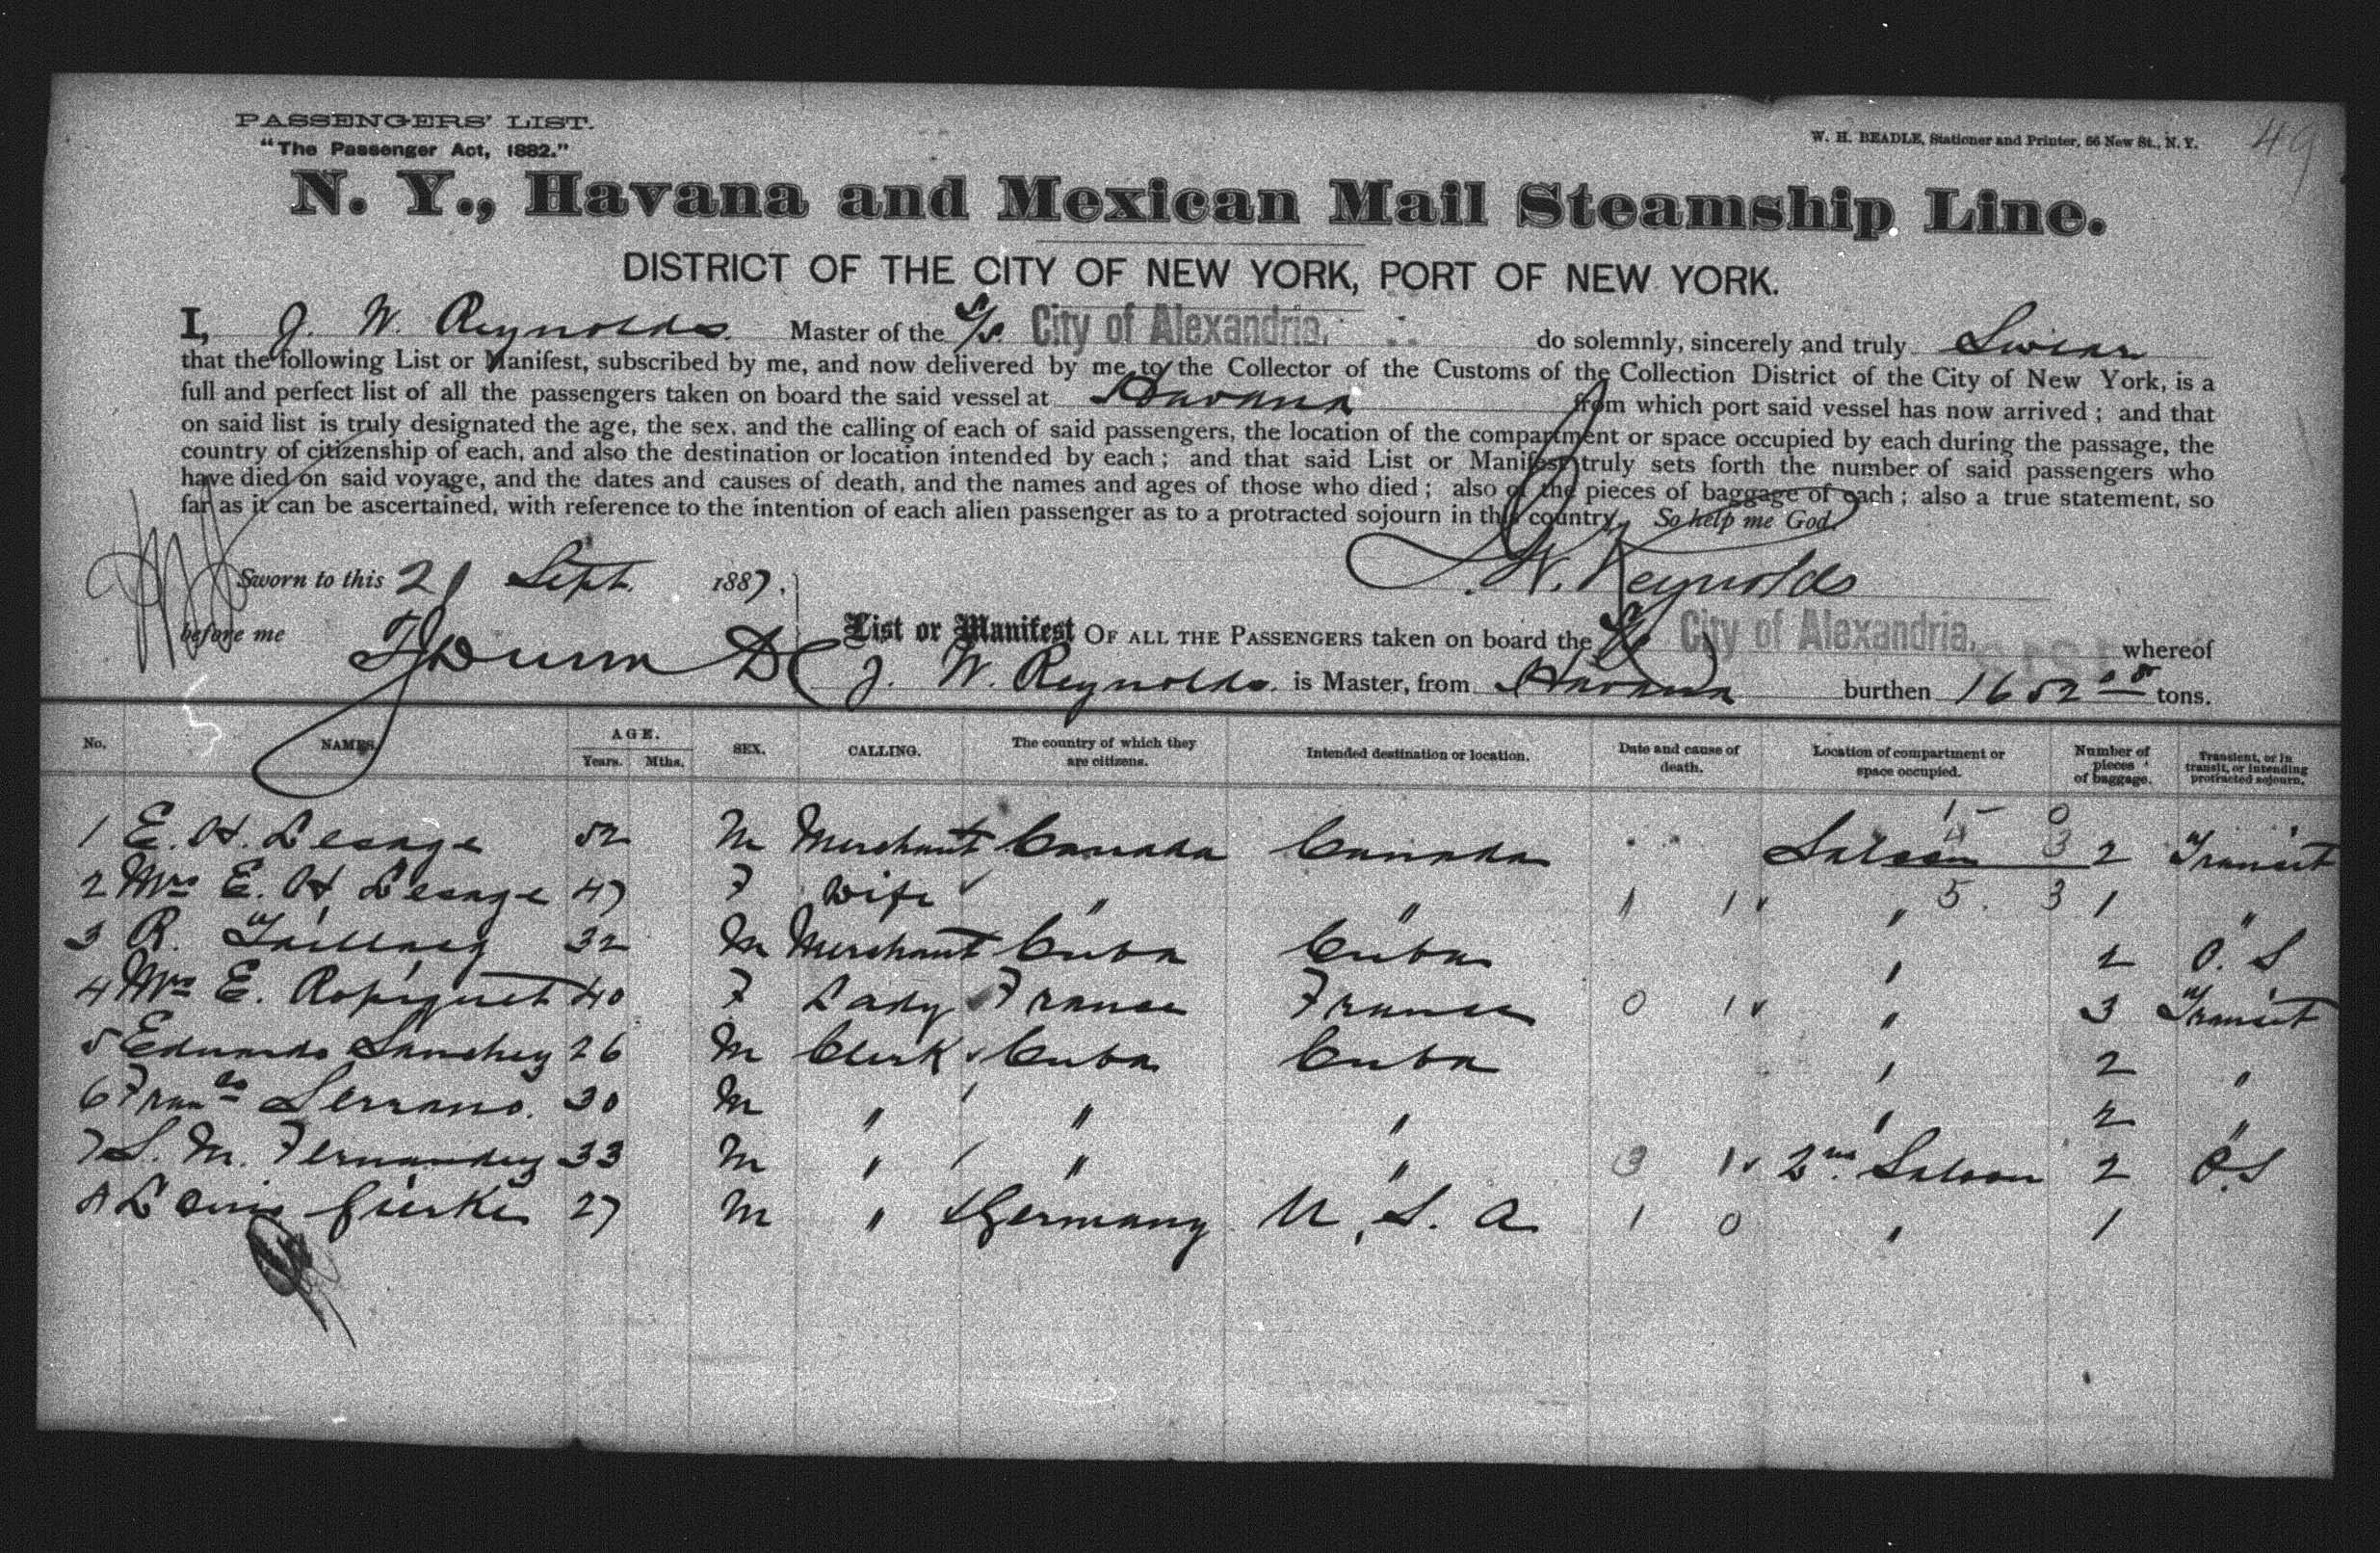 49
PASSENGERS' LIST.
"The Passenger Act, 1882."
W. H. BEADLE, Stationer and Printer, 56 New St., N. Y.
N. Y., Havana and Mexican Mail Steamship Line.
DISTRICT OF THE CITY OF NEW YORK, PORT OF NEW YORK.
I, J. W. Reynolds. Master of the S/S. City of Alexandria, do solemnly, sincerely and truly Swear
that the following List or Manifest, subscribed by me, and now delivered by me to the Collector of the Customs of the Collection District of the City of New York, is a
full and perfect list of all the passengers taken on board the said vessel at Havana from which port said vessel has now arrived; and that
on said list is truly designated the age, the sex, and the calling of each of said passengers, the location of the compartment or space occupied by each during the passage, the
country of citizenship of each, and also the destination or location intended by each; and that said List or Manifest truly sets forth the number of said passengers who
have died on said voyage, and the dates and causes of death, and the names and ages of those who died; also of the pieces of baggage of each; also a true statement, so
far as it can be ascertained, with reference to the intention of each alien passenger as to a protracted sojourn in this country. So help me God.
Sworn to this 21 Sept. 1887. J. W. Reynolds
before me Dunn D C
List or Manifest OF ALL THE PASSENGERS taken on board the S/S City of Alexandria, whereof
J. W. Reynolds. is Master, from Havana burthen 1652 tons.
No. NAMES. AGE. Years. Mths. SEX. CALLING. The country of which they are citizens. Intended destination or location. Date and cause of death. Location of compartment or space occupied. Number of pieces of baggage. Transient, or in transit, or intending protracted sojourn.
1 E. H. Lesage 52 M Merchant Canada Canada Saloon 2 Transit
2 Mrs E. H. Lesage 47 F Wife " " 1 1 " 5 3 1 "
3 R. 32 M Merchant Cuba Cuba " 2 P. S
4 Mrs E. Ropiquet 40 F Lady France France 0 1 " 3 Transit
5 Eduardo Sanchez 26 M Clerk Cuba Cuba " 2 "
6 Franco Serrano. 30 M " " " " 2 "
7 S. M. Fernandez 33 M " " " 3 1 2nd Saloon 2 P.S
8 Louis Gierke 27 M " Germany U. S. A 1 0 " 1